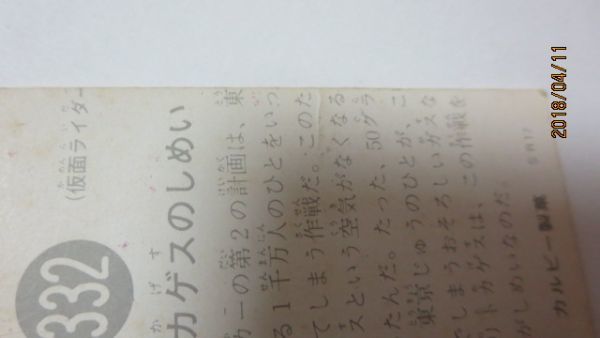 332
(仮面ライダー
カゲスのしめい
カーの第2の計画は、東
る1千万人のひとをいっ
てしまう作戦だ。このた
スという空気がなくなる
ったんだ。たった、50グラ
東京じゅうのひとが、こ
でしまうおそろしいガスな
リトカゲスは、この作戦を
がしめいなのだ。
カルビー製菓
2018/04/11